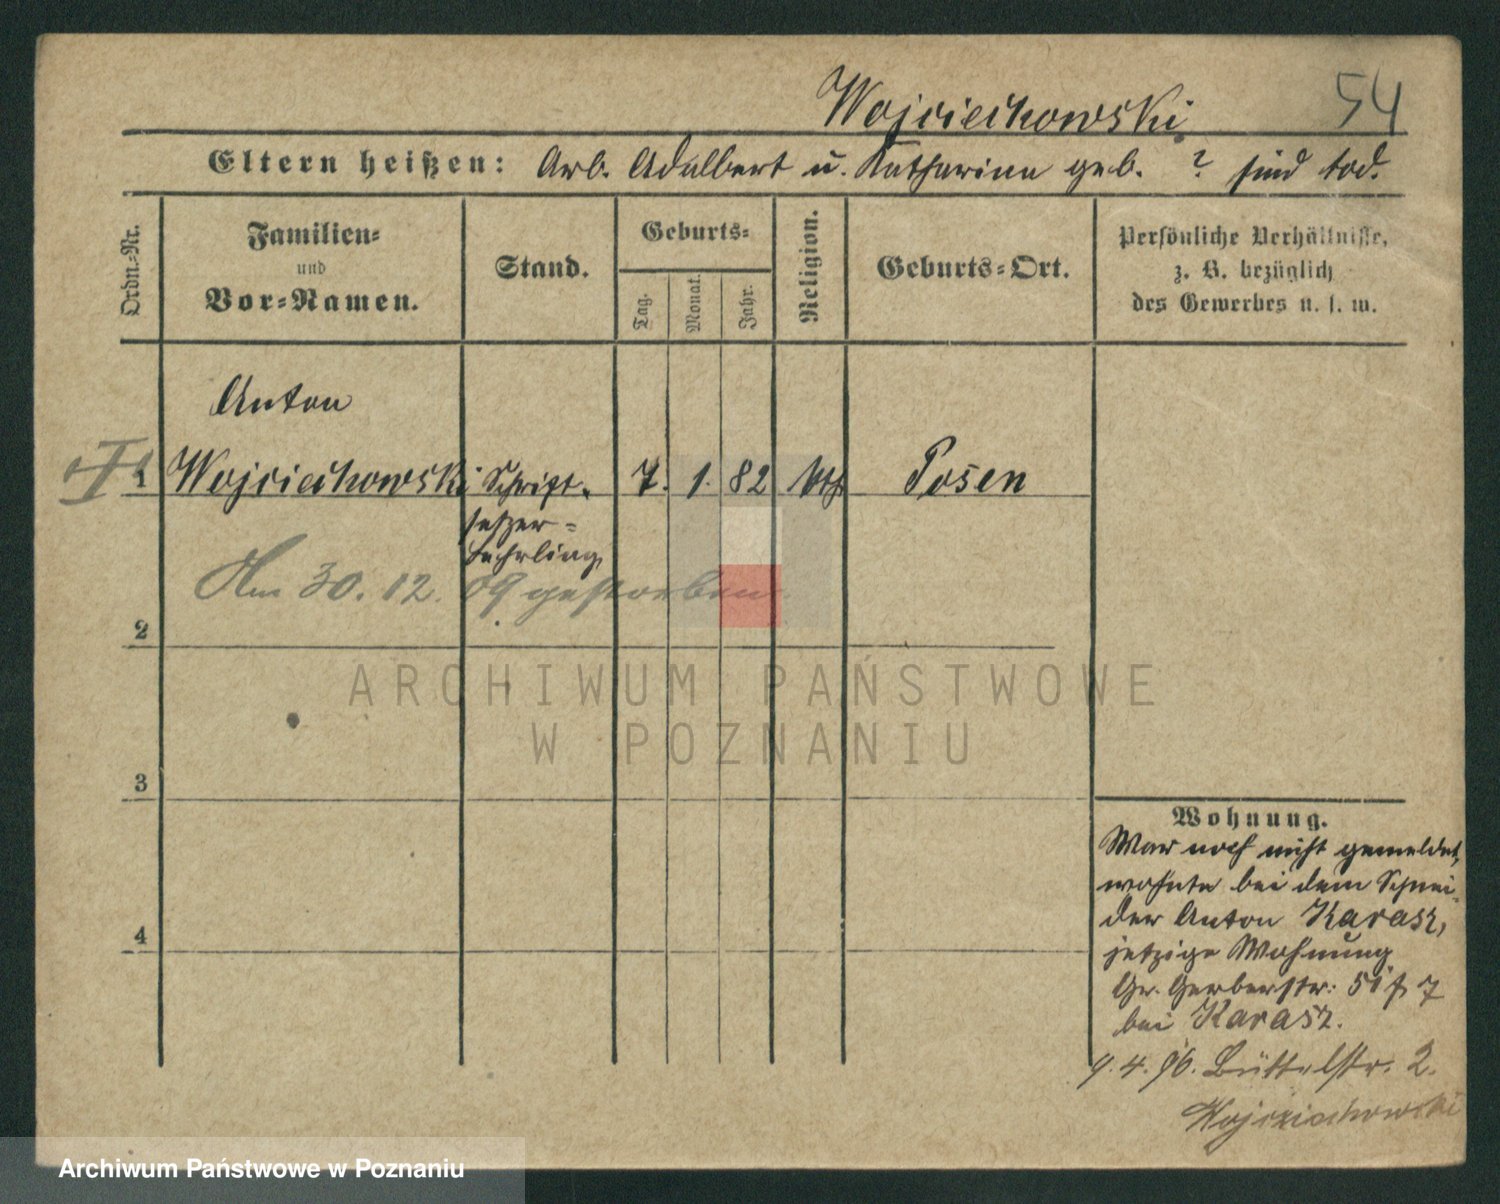 Wojciechowski 54
Eltern heißen: Arb. Adalbert u. Katharina geb. ? sind tod.
Ordn.-Nr.
Familien-
und
Vor-Namen.
Stand.
Geburts-
Tag.
Monat.
Jahr.
Religion.
Geburts-Ort.
Persönliche Verhältnisse,
z. B. bezüglich
des Gewerbes u. s. w.
Anton
1 Wojciechowski Schrift- 7. 1. 82 kth Posen
setzer-
Lehrling
Am 30. 12. 09 gestorben
2
ARCHIWUM PAŃSTWOWE
W POZNANIU
3
4
Wohnung.
War noch nicht gemeldet,
wohnte bei dem Schnei-
der Anton Karasz,
jetzige Wohnung
Gr. Gerberstr: 51 7
bei Karasz.
9. 4. 96. Büttelstr. 2.
Wojciechowski
Archiwum Państwowe w Poznaniu